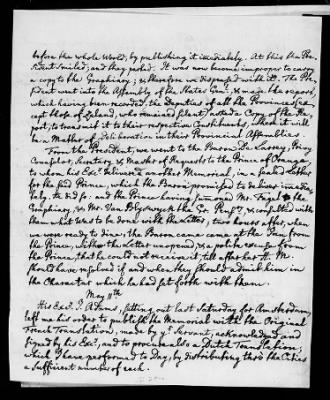 before the whole World, by publishing it imediately. At this the Pre-
sident smiled; and they parted. It was now become improper to carry
a copy to the Grephiary; & therefore we dispensed with it. The Pre-
sident went into the Assembly of the States Genl. & made the report,
which having been recorded, the Deputies of all the Provinces (ex-
cept those of Zeland, who remained silent) asked a Copy of the Re-
port, to transmit it to their respective Constituents, that it will
be a Matter of Deliberation in their Provincial Assemblies
From the President, we went to the Baron De Larrey, Privy
Counselor, Secretary & Master of Requests to the Prince of Orange,
to whom his Excy. delivered another Memorial, in a sealed Letter
for the sd Prince, which the Baron promised to deliver imedia-
tely. He did so: and the Prince having summoned Mr. Fagel the
Grephiary, & Mr. Van Bleiswyk the Gr. Pensy. & consulted with
them what was to be done with the Letter, two hours after, when
we were ready to dine, the Baron came came at the Inn from
the Prince, with the Letter unopened, & a polite excuse from
the Prince, that he could not receive it, till after their H. M.
should have resolved if and when they should admit him in
the Character which he had set forth with them.
May 11th
His Excy. J. Adams, sitting out last Saturday for Amsterdam,
left me his order to publish the Memorial with the Original
French Translation, made by yr. Servant, acknowledged and
signed by his Excy. and to procure also a Dutch Translation;
which I have performed to Day, by distributing thro' the Cities
a sufficient number of each.